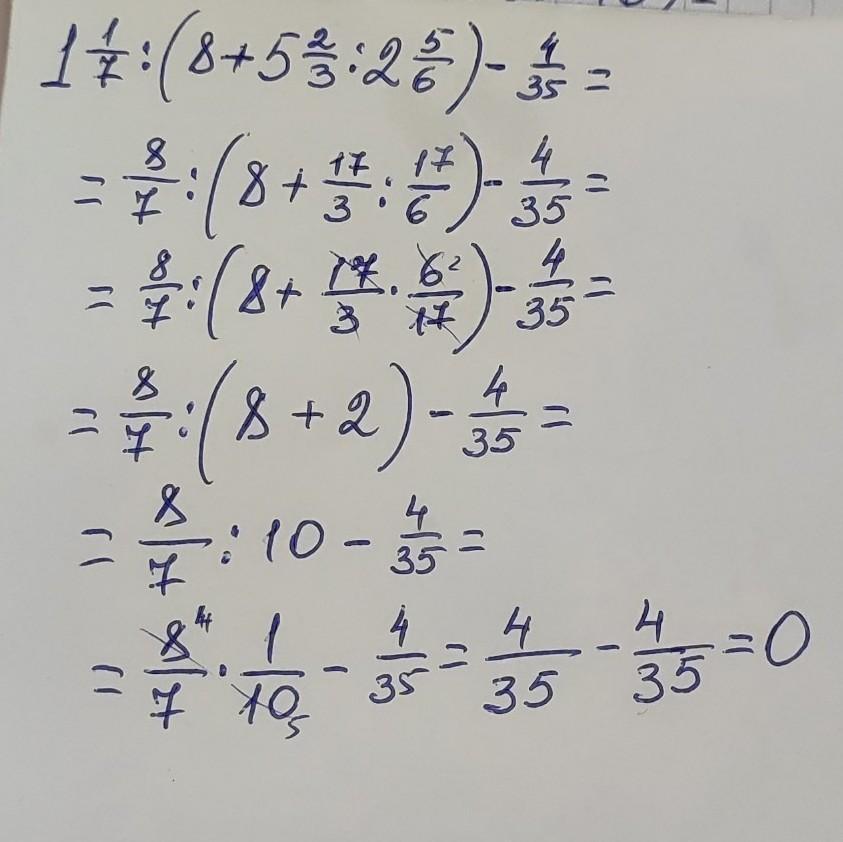 1 1/7 : (8 + 5 2/3 : 2 5/6) - 4/35 =
= 8/7 : (8 + 17/3 : 17/6) - 4/35 =
= 8/7 : (8 + 17/3 · 6²/17) - 4/35 =
= 8/7 : (8 + 2) - 4/35 =
= 8/7 : 10 - 4/35 =
= 8⁴/7 · 1/10₅ - 4/35 = 4/35 - 4/35 = 0